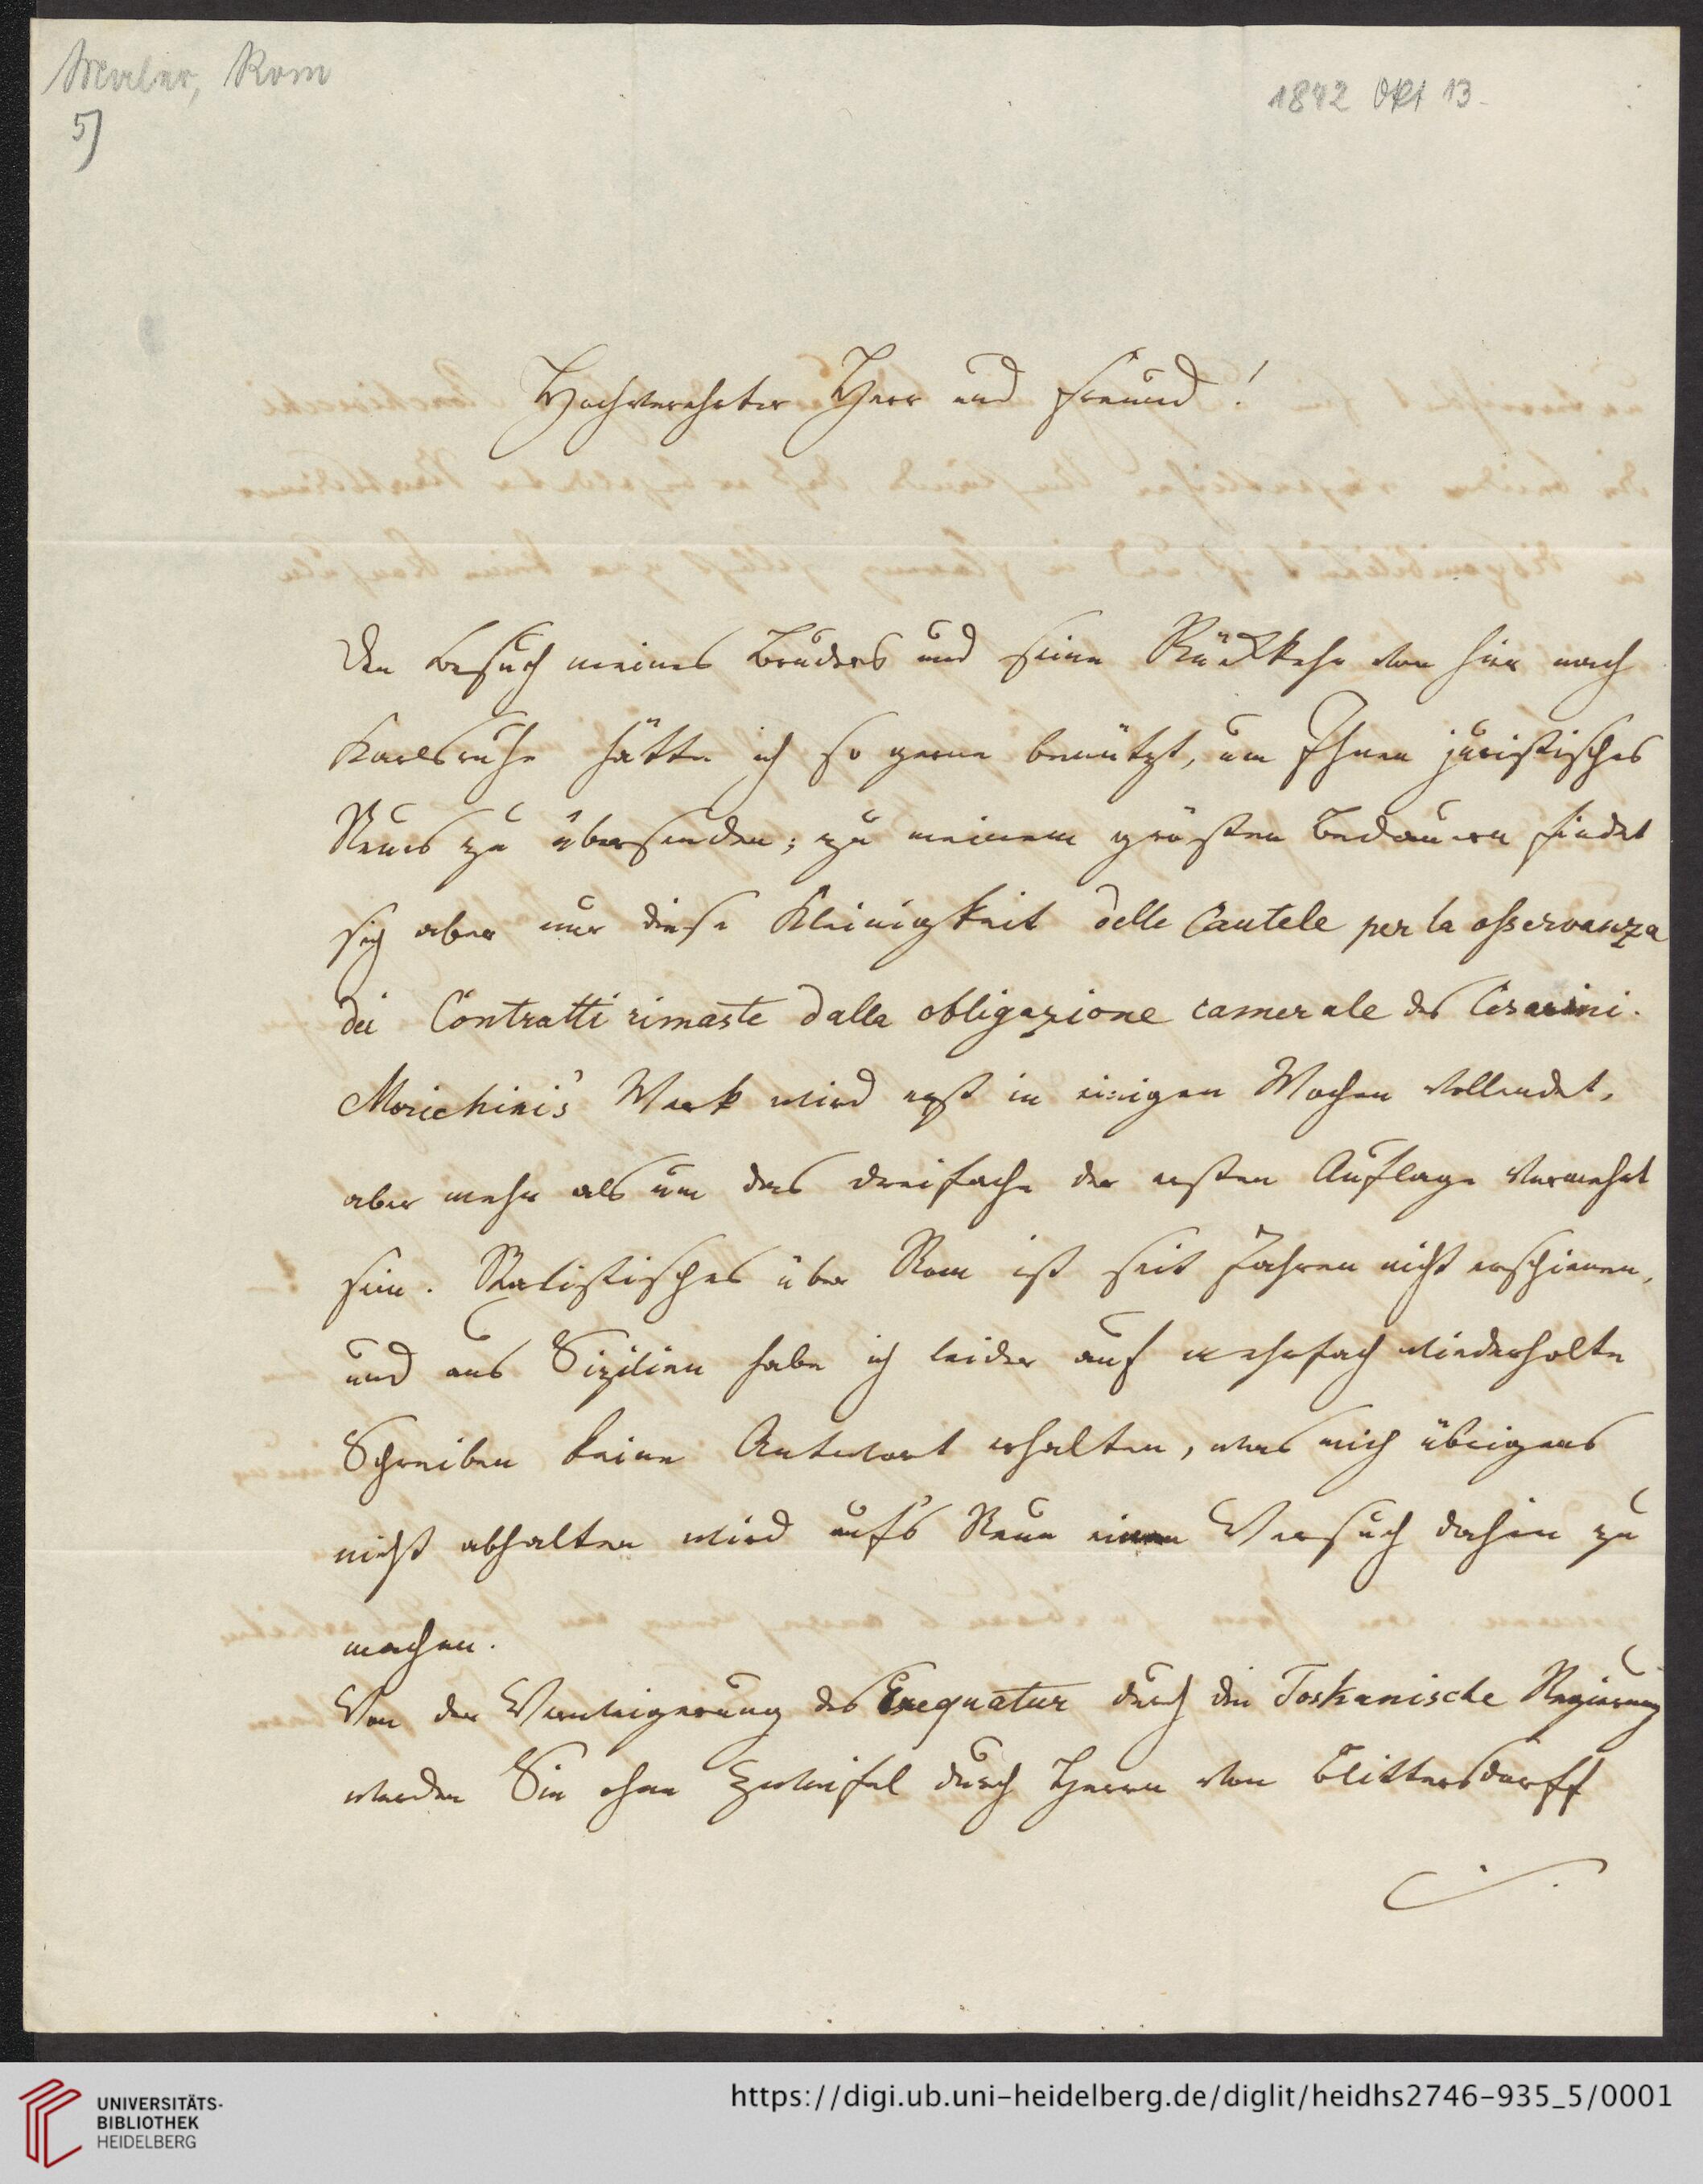 Maler, Rom
5)
1842 Okt 13.
Hochverehrter Herr und Freund!
Den Besuch meines Bruders und seine Rückkehr von hier nach
Karlsruhe hätte ich so gerne benützt, um Ihnen juristisches
Neues zu übersenden; zu meinem grösten Bedauern findet
sich aber nur diese Kleinigkeit delle Cautele per la osservanza
dei Contratti rimaste dalla obligazione camerale des Cesarini.
Morichini's Werk wird erst in einigen Wochen vollendet,
aber mehr als um das dreifache der ersten Auflage vermehrt
sein. Statistisches über Rom ist seit Jahren nicht erschienen,
und aus Sizilien habe ich leider auf mehrfach wiederholte
Schreiben keine Antwort erhalten, was mich übrigens
nicht abhalten wird aufs Neue einen Versuch dahin zu
machen.
Von der Verweigerung des Exequatur durch die Toskanische Regierung
werden Sie ohne Zweifel durch Herrn von Blittersdorff
UNIVERSITÄTS-
BIBLIOTHEK
HEIDELBERG
https://digi.ub.uni-heidelberg.de/diglit/heidhs2746-935_5/0001